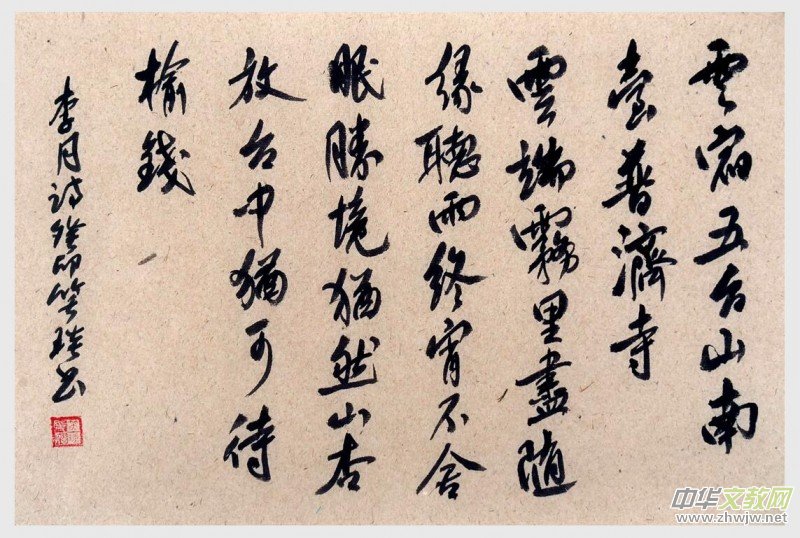 雲宿五台山南
臺普濟寺
雲端霧里盡隨
緣聽雨終宵不舍
眠勝境猶然山杏
放台中猶可待
榆錢
李月诗癸卯笑书
中华文教网
www.zhwjw.net